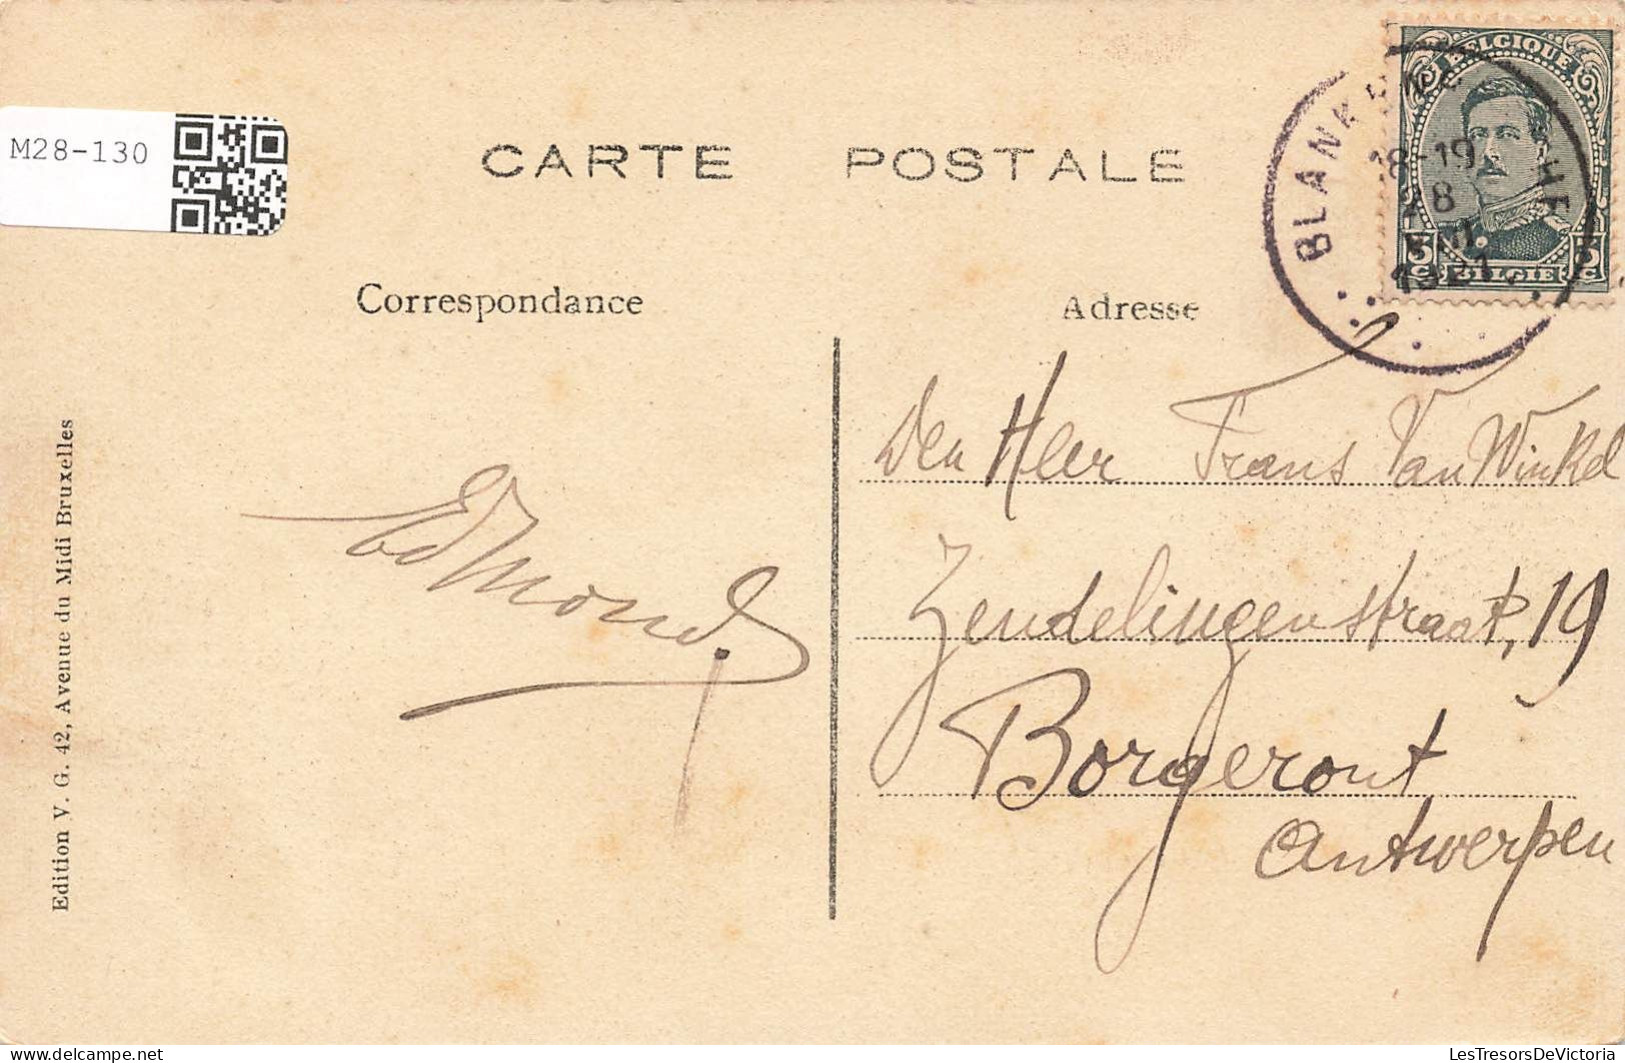 M28-130
CARTE POSTALE
Correspondance
Adresse
BELGIQUE
BELGIE
5 C
5 C
BLANKENBERGHE
18-19
28
VIII
1921
Edmond.
Den Heer Frans Van Winkel
Zendelingenstraat, 19
Borgerout
Antwerpen
Edition V. G. 42, Avenue du Midi Bruxelles
delcampe.net
LesTresorsDeVictoria